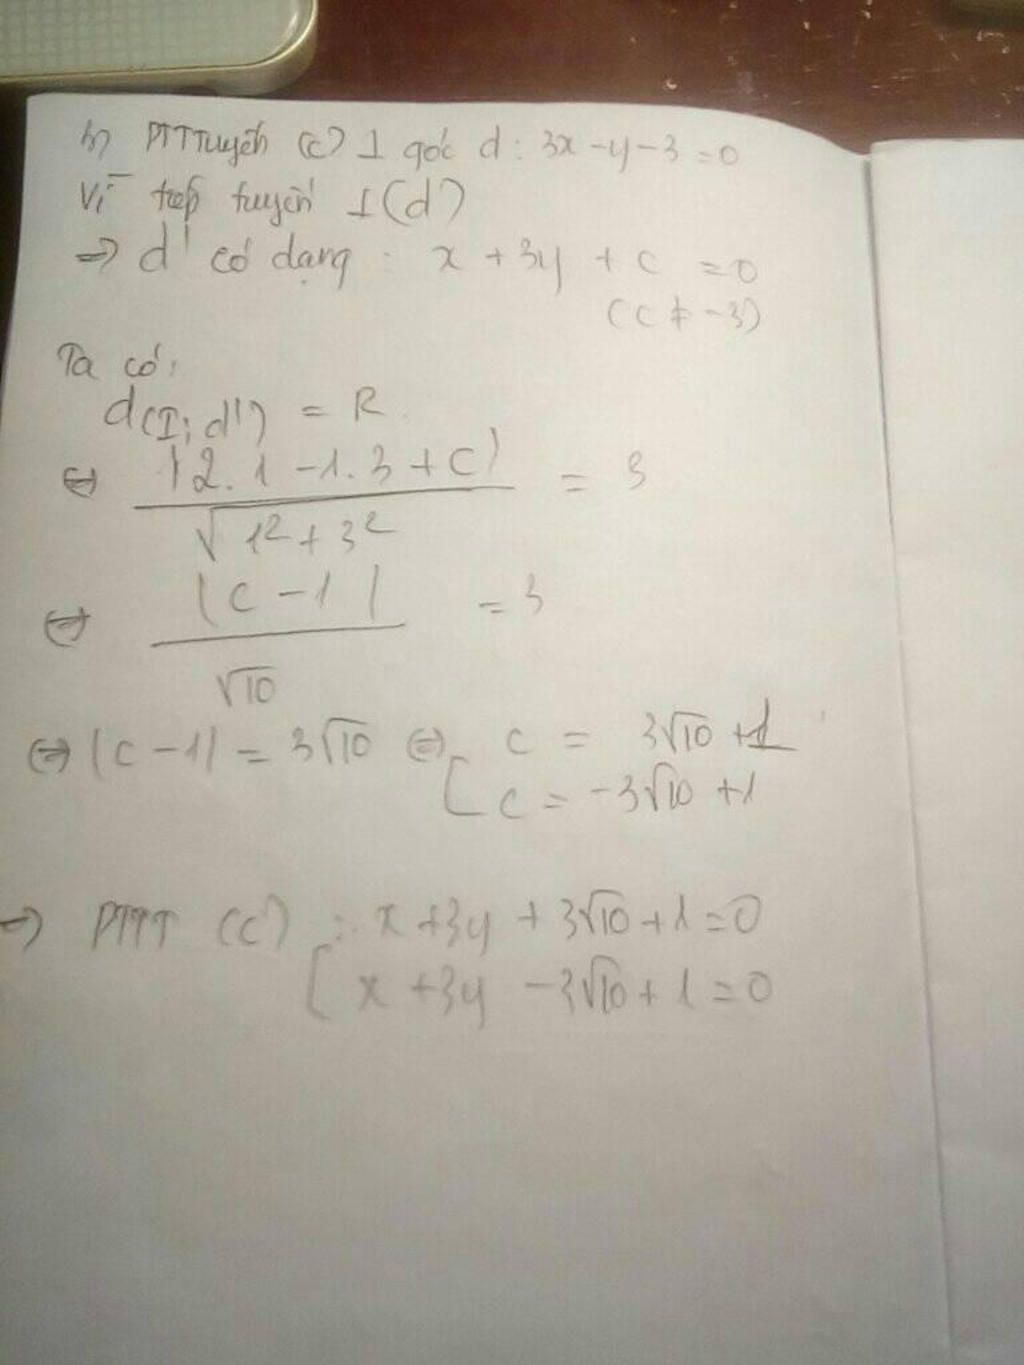 b) PTTTuyến (C) ⊥ góc d: 3x - y - 3 = 0
Vì tiếp tuyến ⊥ (d)
=> d' có dạng : x + 3y + c = 0
(c ≠ -3)
Ta có:
d(I; d') = R.
<=> |2.1 - 1.3 + c| / √1² + 3² = 3
<=> |c - 1| / √10 = 3
<=> |c - 1| = 3√10 <=> [ c = 3√10 + 1
c = -3√10 + 1
=> PTTT (C) : [ x + 3y + 3√10 + 1 = 0
x + 3y - 3√10 + 1 = 0